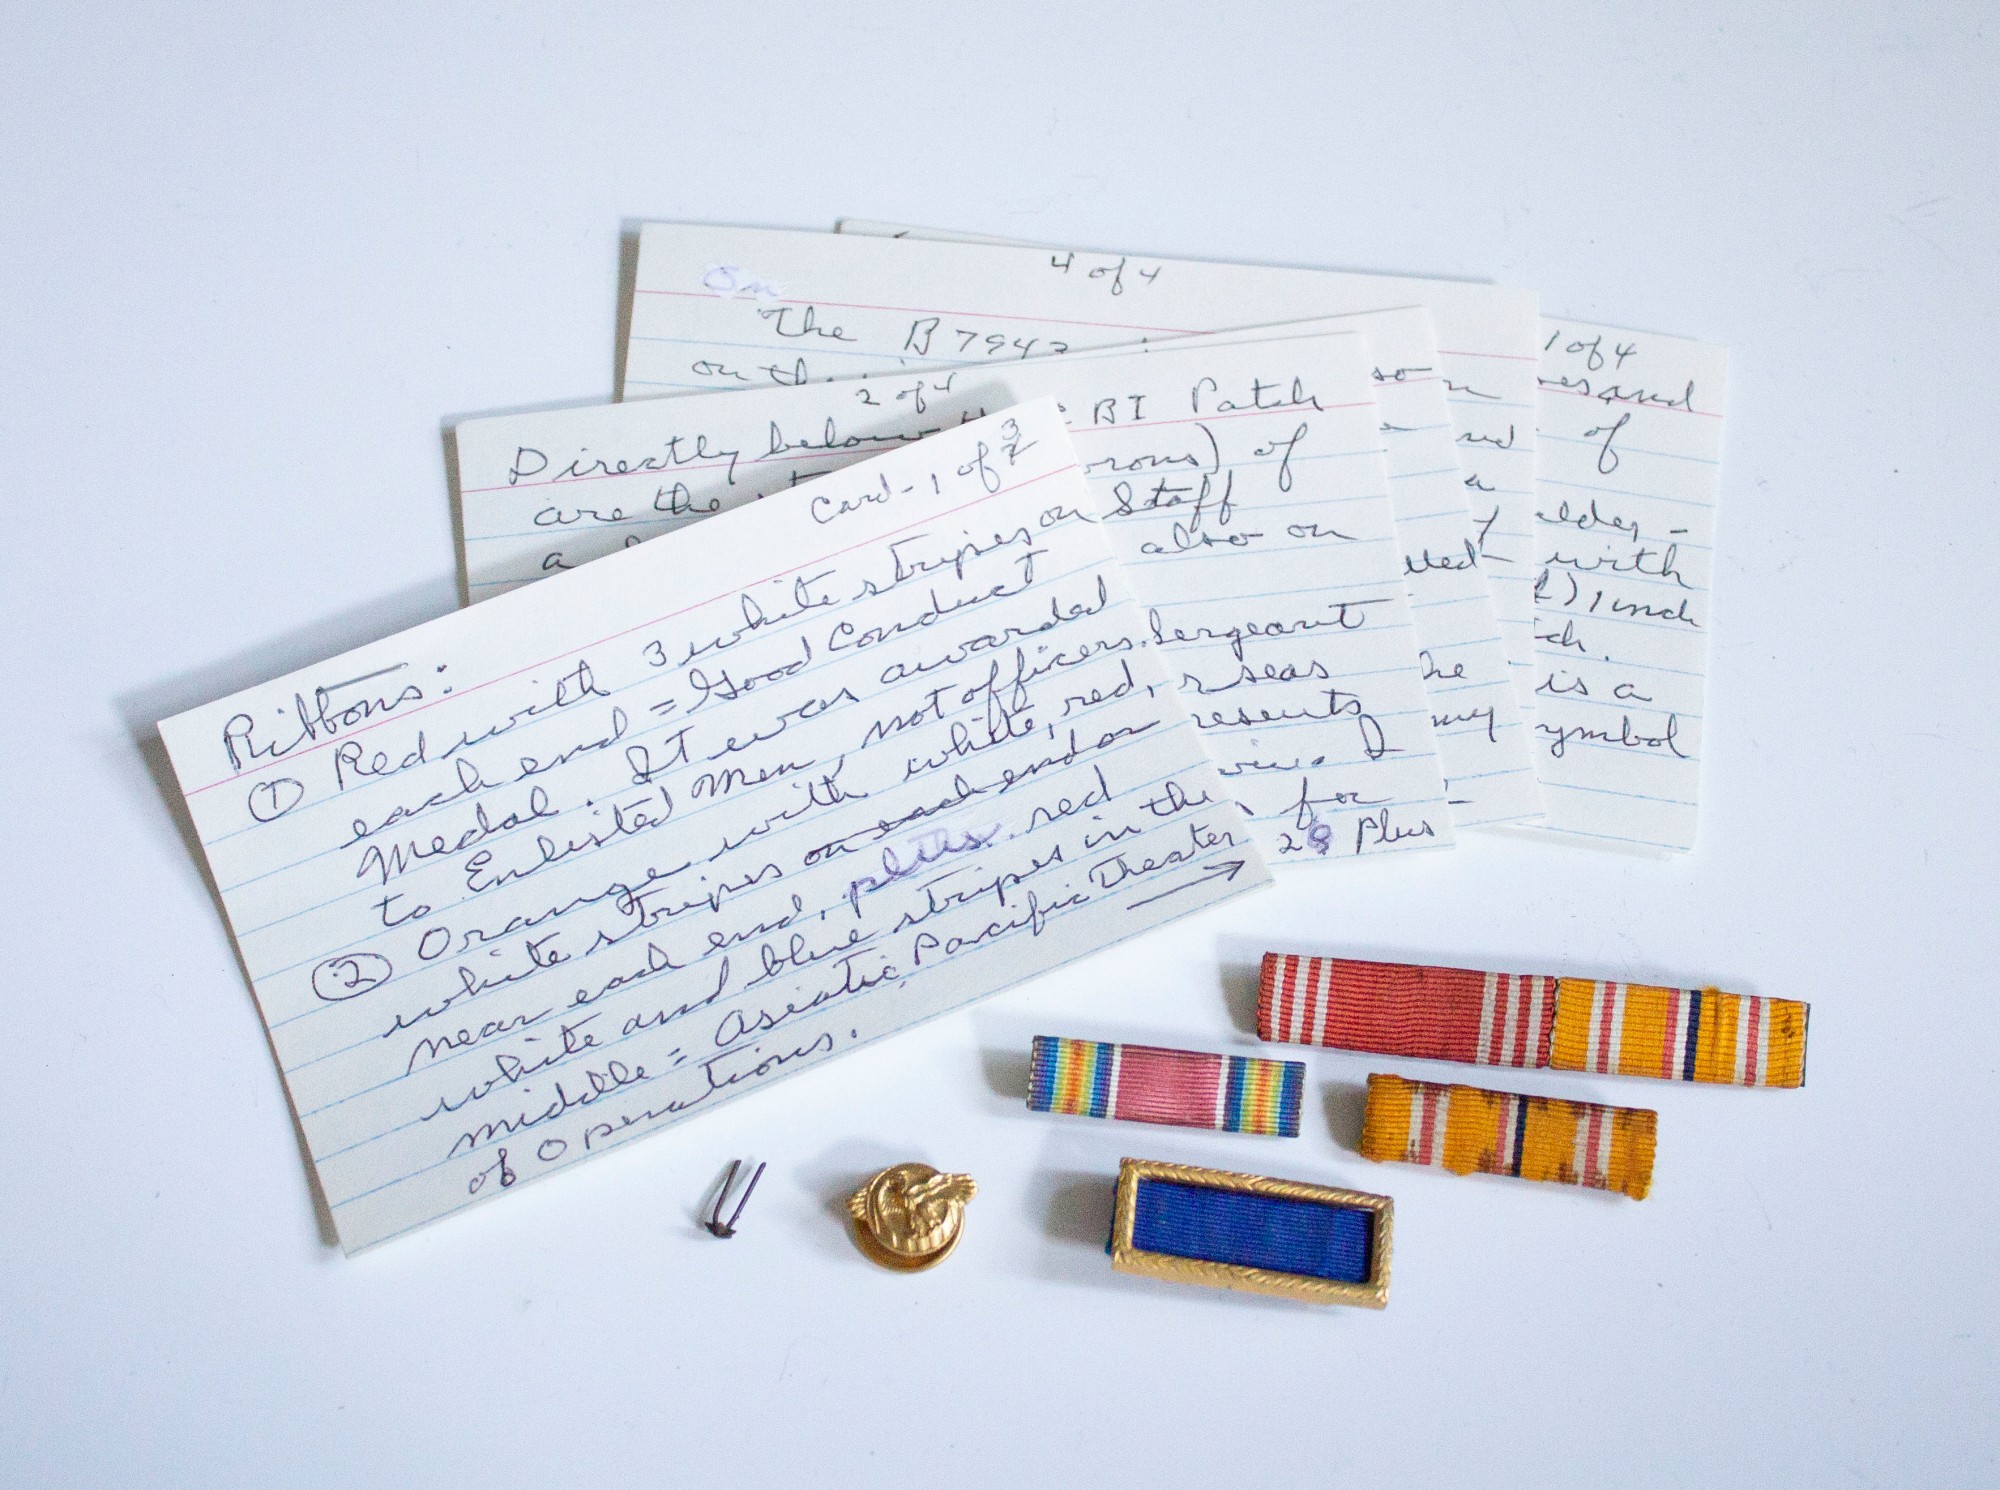 4 of 4
on
The B7942 :
on th
1 of 4
and
of
with
1 inch
is a
symbol
so
a
he
my
2 of 4
Directly below CBI Patch
are the of
a Staff
also on
Sergeant
seas
I
for
28 Plus
Card-1 of 3
Ribbons:
① Red with 3 white stripes on
each end = Good Conduct
Medal. It was awarded
to Enlisted Men, not officers.
② Orange with white, red,
white stripes on each end or
near each end, plus red
white and blue stripes in the
middle = Asiatic Pacific Theater
of Operations. →